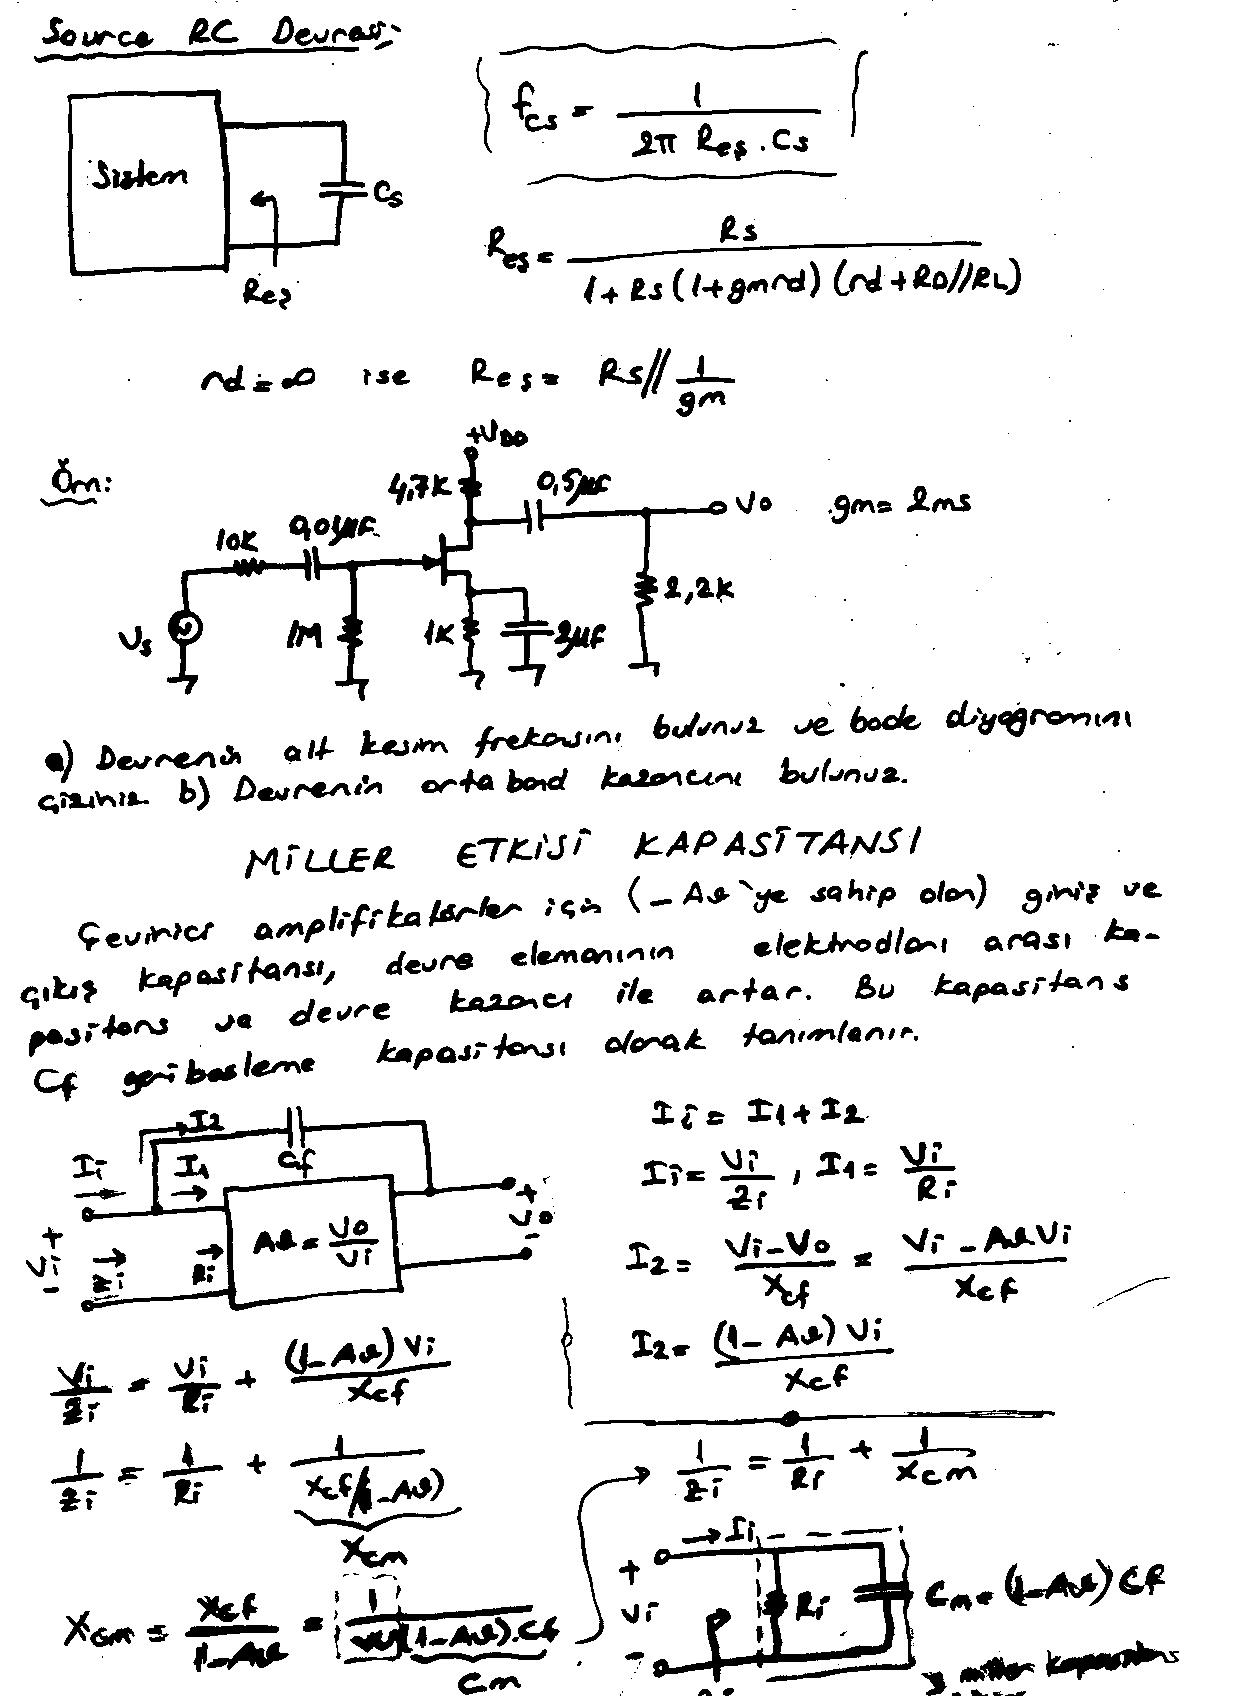 Source RC Devresi:
Sistem
Cs
Reş
fcs = 1 / 2π Reş . Cs
Reş = Rs / 1 + Rs (1+gmrd) (rd + RD//RL)
rd = ∞ ise Reş = Rs // 1/gm
Örn:
+VDD
4,7K
0,5µF
Vo
gm = 2ms
10K
0,01µF
2,2K
Vs
1M
1K
2µF
a) Devrenin alt kesim frekansını bulunuz ve bode diyagramını
çiziniz. b) Devrenin orta band kazancını bulunuz.
MİLLER ETKİSİ KAPASİTANSI
Çevirici amplifikatörler için (-Av'ye sahip olan) giriş ve
çıkış kapasitansı, devre elemanının elektrodları arası ka-
pasitans ve devre kazancı ile artar. Bu kapasitans
Cf geribesleme kapasitansı olarak tanımlanır.
I2
Cf
Ii
I1
+
Vi
-
Zi
Ri
Av = Vo/Vi
+
Vo
-
Ii = I1 + I2
Ii = Vi/Zi , I1 = Vi/Ri
I2 = Vi-Vo / Xcf = Vi - AvVi / Xcf
I2 = (1-Av) Vi / Xcf
Vi/Zi = Vi/Ri + (1-Av) Vi / Xcf
1/Zi = 1/Ri + 1 / Xcf/(1-Av)
Xcm
1/Zi = 1/Ri + 1/Xcm
Xcm = Xcf / 1-Av = 1 / w(1-Av).Cf
Cm
Ii
+
Vi
-
Ri
Cm = (1-Av) Cf
miller kapasitans